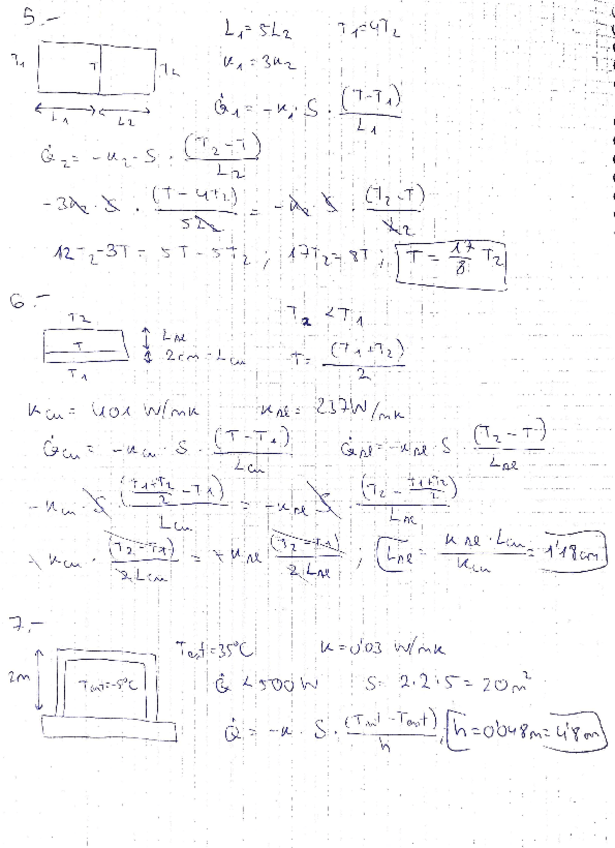 5.-
L₁ = 5L₂ T₁ = 4T₂
κ₁ = 3κ₂
T₁ T T₂
L₁ L₂
Q̇₁ = -κ₁ · S · (T-T₁)/L₁
Q̇₂ = -κ₂ · S · (T₂-T)/L₂
-3κ₂ · S · (T-4T₂)/5L₂ = -κ₂ · S · (T₂-T)/L₂
12T₂-3T = 5T-5T₂ ; 17T₂ = 8T ; T = 17/8 T₂
6.-
T₂ < T₁
T₂
T
T₁
L Al
2cm - Lcu
T = (T₁+T₂)/2
κcu = 401 W/mK κAl = 237 W/mK
Q̇cu = -κcu · S · (T-T₁)/Lcu Q̇Al = -κAl · S · (T₂-T)/LAl
-κcu · S · ((T₁+T₂)/2 - T₁)/Lcu = -κAl · S · (T₂ - (T₁+T₂)/2)/LAl
κcu · (T₂-T₁)/2Lcu = κAl (T₂-T₁)/2LAl ; LAl = κAl · Lcu/κcu = 1'18cm
7.-
Text = 35ºC κ = 0'03 W/mK
2m
Tint = -5ºC
Q̇ < 500W S = 2·2·5 = 20m²
Q̇ = -κ · S · (Tint - Text)/h ; h = 0'048m = 4'8m